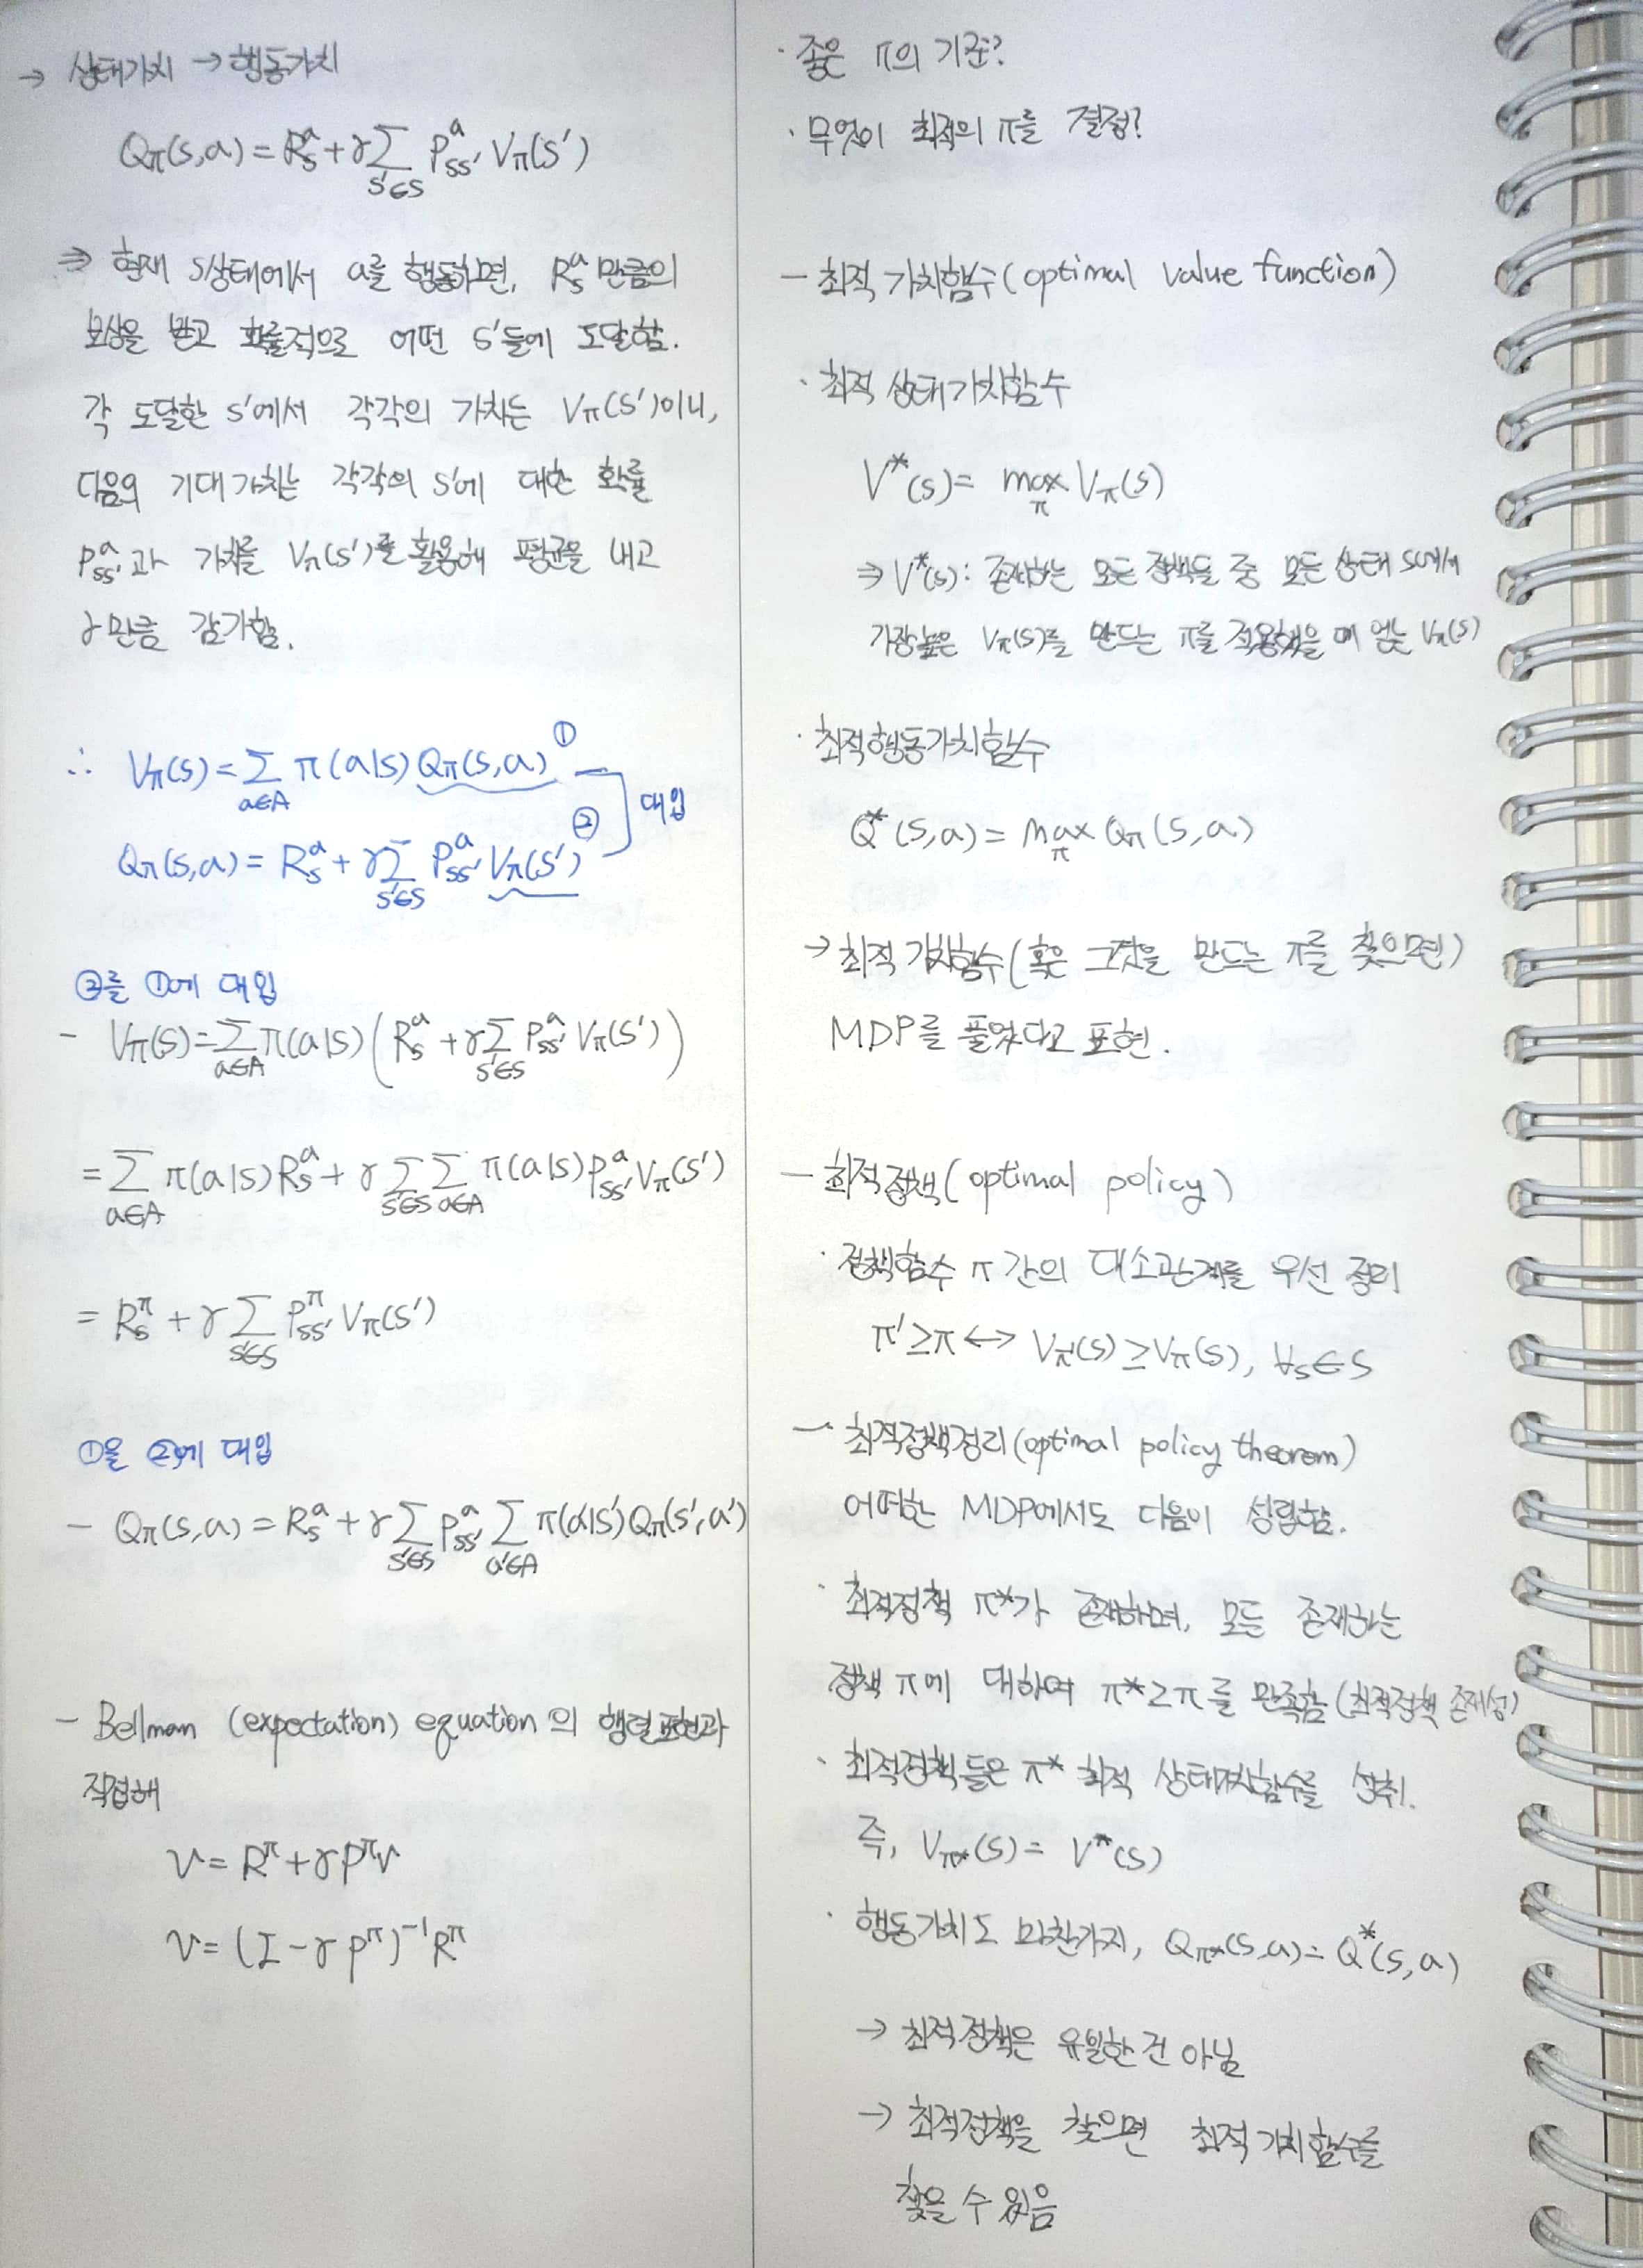 → 상태가치 → 행동가치
Qπ(s,a) = R_s^a + γ∑_{s'∈S} P_{ss'}^a Vπ(s')
⇒ 현재 s상태에서 a를 행동하면, R_s^a 만큼의
보상을 받고 확률적으로 어떤 s'들에 도달함.
각 도달한 s'에서 각각의 가치는 Vπ(s')이니,
다음의 기대가치는 각각의 s'에 대한 확률
P_{ss'}^a과 가치를 Vπ(s')를 활용해 평균을 내고
γ만큼 감가함.
∴ Vπ(s) = ∑_{a∈A} π(a|s) Qπ(s,a) ①
Qπ(s,a) = R_s^a + γ∑_{s'∈S} P_{ss'}^a Vπ(s') ②
대입
②를 ①에 대입
- Vπ(s) = ∑_{a∈A} π(a|s) (R_s^a + γ∑_{s'∈S} P_{ss'}^a Vπ(s'))
= ∑_{a∈A} π(a|s) R_s^a + γ ∑_{s'∈S} ∑_{a∈A} π(a|s) P_{ss'}^a Vπ(s')
= R_s^π + γ ∑_{s'∈S} P_{ss'}^π Vπ(s')
①을 ②에 대입
- Qπ(s,a) = R_s^a + γ∑_{s'∈S} P_{ss'}^a ∑_{a'∈A} π(a'|s') Qπ(s',a')
- Bellman (expectation) equation의 행렬표현과
직접해
v = R^π + γP^π v
v = (I - γP^π)^{-1} R^π
· 좋은 π의 기준?
· 무엇이 최적의 π를 결정?
- 최적 가치함수(optimal value function)
· 최적 상태가치함수
V*(s) = max_π Vπ(s)
⇒ V*(s): 존재하는 모든 정책들 중 모든 상태 s에서
가장 높은 Vπ(s)를 만드는 π를 적용했을 때 얻는 Vπ(s)
· 최적행동가치함수
Q*(s,a) = max_π Qπ(s,a)
→ 최적 가치함수(혹은 그것을 만드는 π를 찾으면)
MDP를 풀었다고 표현.
- 최적정책(optimal policy)
· 정책함수 π 간의 대소관계를 우선 정리
π' ≥ π ↔ Vπ'(s) ≥ Vπ(s), ∀s∈S
- 최적정책정리(optimal policy theorem)
어떠한 MDP에서도 다음이 성립함.
· 최적정책 π*가 존재하며, 모든 존재하는
정책 π에 대하여 π* ≥ π를 만족함 (최적정책 존재성)
· 최적정책들은 π* 최적 상태가치함수를 성취.
즉, Vπ*(s) = V*(s)
· 행동가치도 마찬가지, Qπ*(s,a) = Q*(s,a)
→ 최적정책은 유일한 건 아님
→ 최적정책을 찾으면 최적 가치함수를
찾을 수 있음